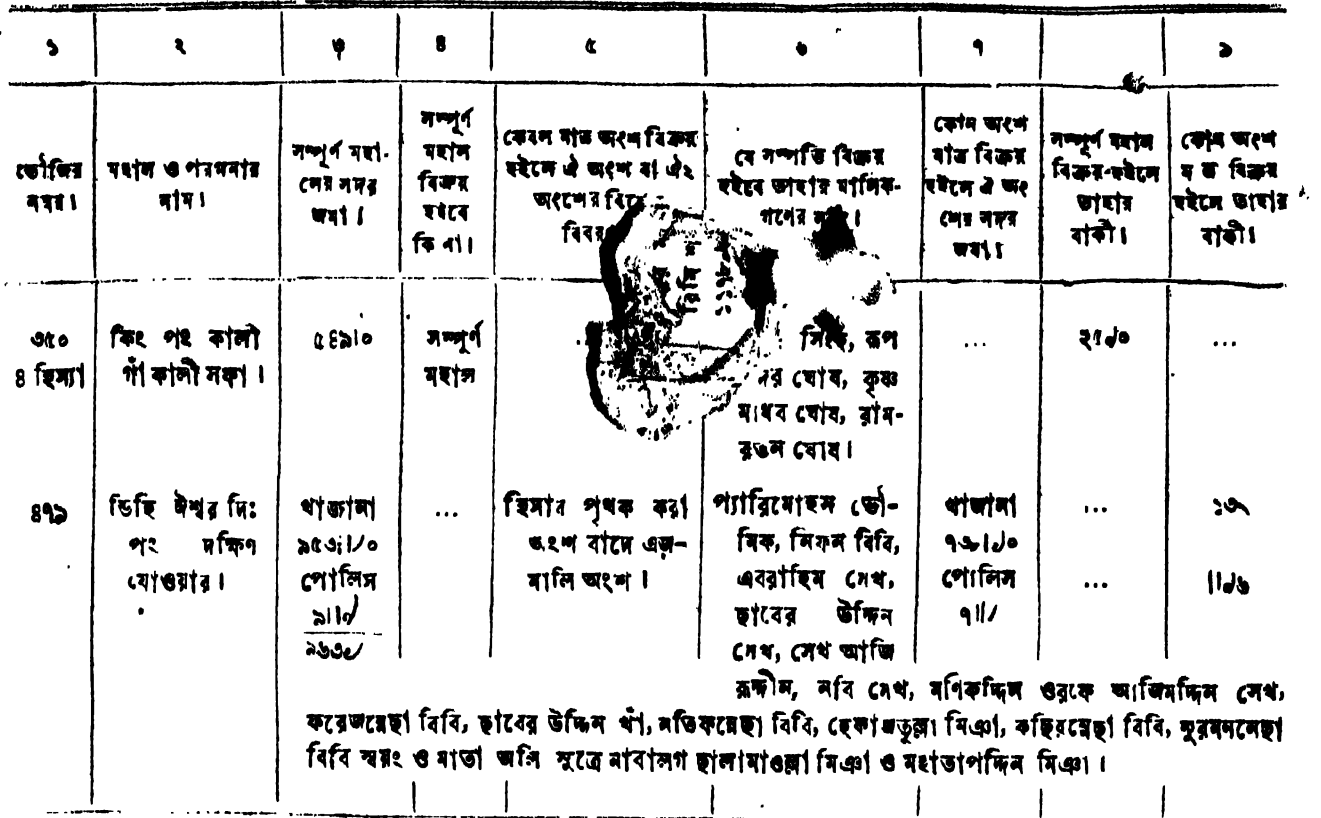 ১ ২ ৩ ৪ ৫ ৬ ৭ ৯
তৌজির
নম্বর।
মহাল ও পরগনার
নাম।
সম্পূর্ণ মহা-
লের সদর
জমা।
সম্পূর্ণ
মহাল
বিক্রয়
হইবে
কি না।
কেবল মাত্র অংশ বিক্রয়
হইলে ঐ অংশ বা ঐ২
অংশের
যে সম্পত্তি বিক্রয়
হইবে তাহার মালিক-
গণের
কোন অংশ
মাত্র বিক্রয়
হইলে ঐ অং
শের সদর
জমা।
সম্পূর্ণ মহাল
বিক্রয় হইলে
তাহার
বাকী।
কোন অংশ
বিক্রয়
হইলে তাহার
বাকী।
৩৫০
৪ হিস্যা
কিং পং কালী
গাঁ কালী সফা।
৫৪৯।০
সম্পূর্ণ
মহাল
রূপ
ঘোষ, কৃষ্ণ
মাধব ঘোষ, রাম-
রতন ঘোষ।
...
২৭৶০
...
৪৭৯
ডিহি ঈশ্বর দিঃ
পং দক্ষিণ
যোওয়ার।
খাজানা
পোলিস
...
হিসাব পৃথক করা
অংশ বাদে এজ-
মালি অংশ।
প্যারিমোহন ভৌ-
মিক, নিফল বিবি,
এবরাহিম সেখ,
ছাবের উদ্দিন
সেখ, সেখ আজি
রুদ্দীন, নবি সেখ, মণিকদ্দিন ওরফে আজিমদ্দিন সেখ,
ফয়েজন্নেছা বিবি, ছাবের উদ্দিন খাঁ, মতিফন্নেছা বিবি, হেফাজতুল্লা মিঞা, কছিরন্নেছা বিবি,
বিবি স্বয়ং ও মাতা অলি সূত্রে নাবালগ ছালামাওল্লা মিঞা ও মহাতাপদ্দিন মিঞা।
খাজানা
পোলিস
৭॥৴
...
...
১৩৲
॥৶৬